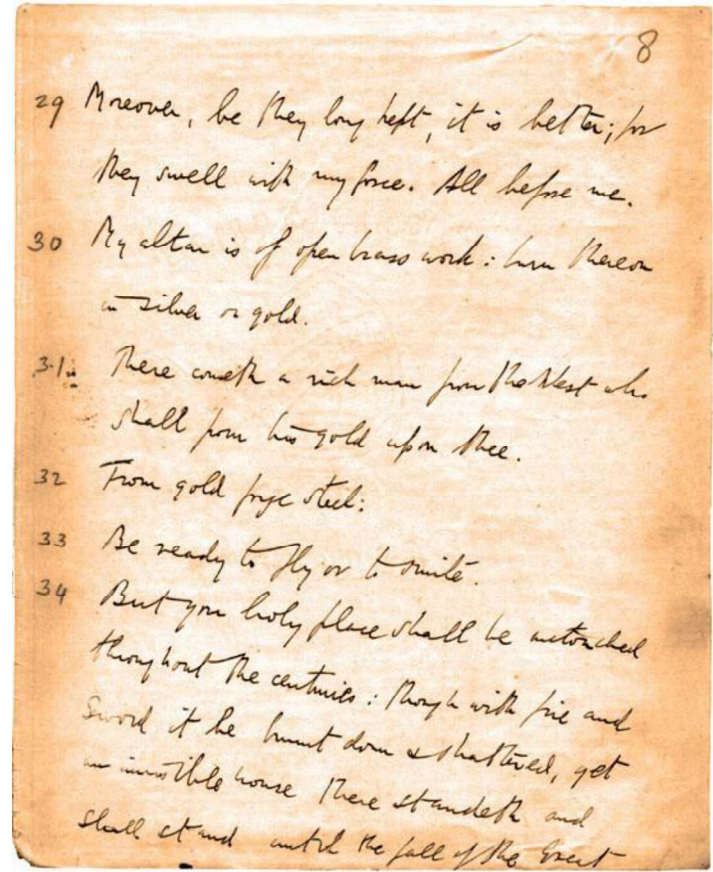 8
29 Moreover, be they long kept, it is better; for
they swell with my force. All before me.
30 My altar is of open brass work: burn thereon
in silver or gold.
31. There cometh a rich man from the West who
shall pour his gold upon thee.
32 From gold forge steel:
33 Be ready to fly or to smite.
34 But your holy place shall be untouched
throughout the centuries: though with fire and
sword it be burnt down & shattered, yet
an invisible house there standeth and
shall stand until the fall of the Great